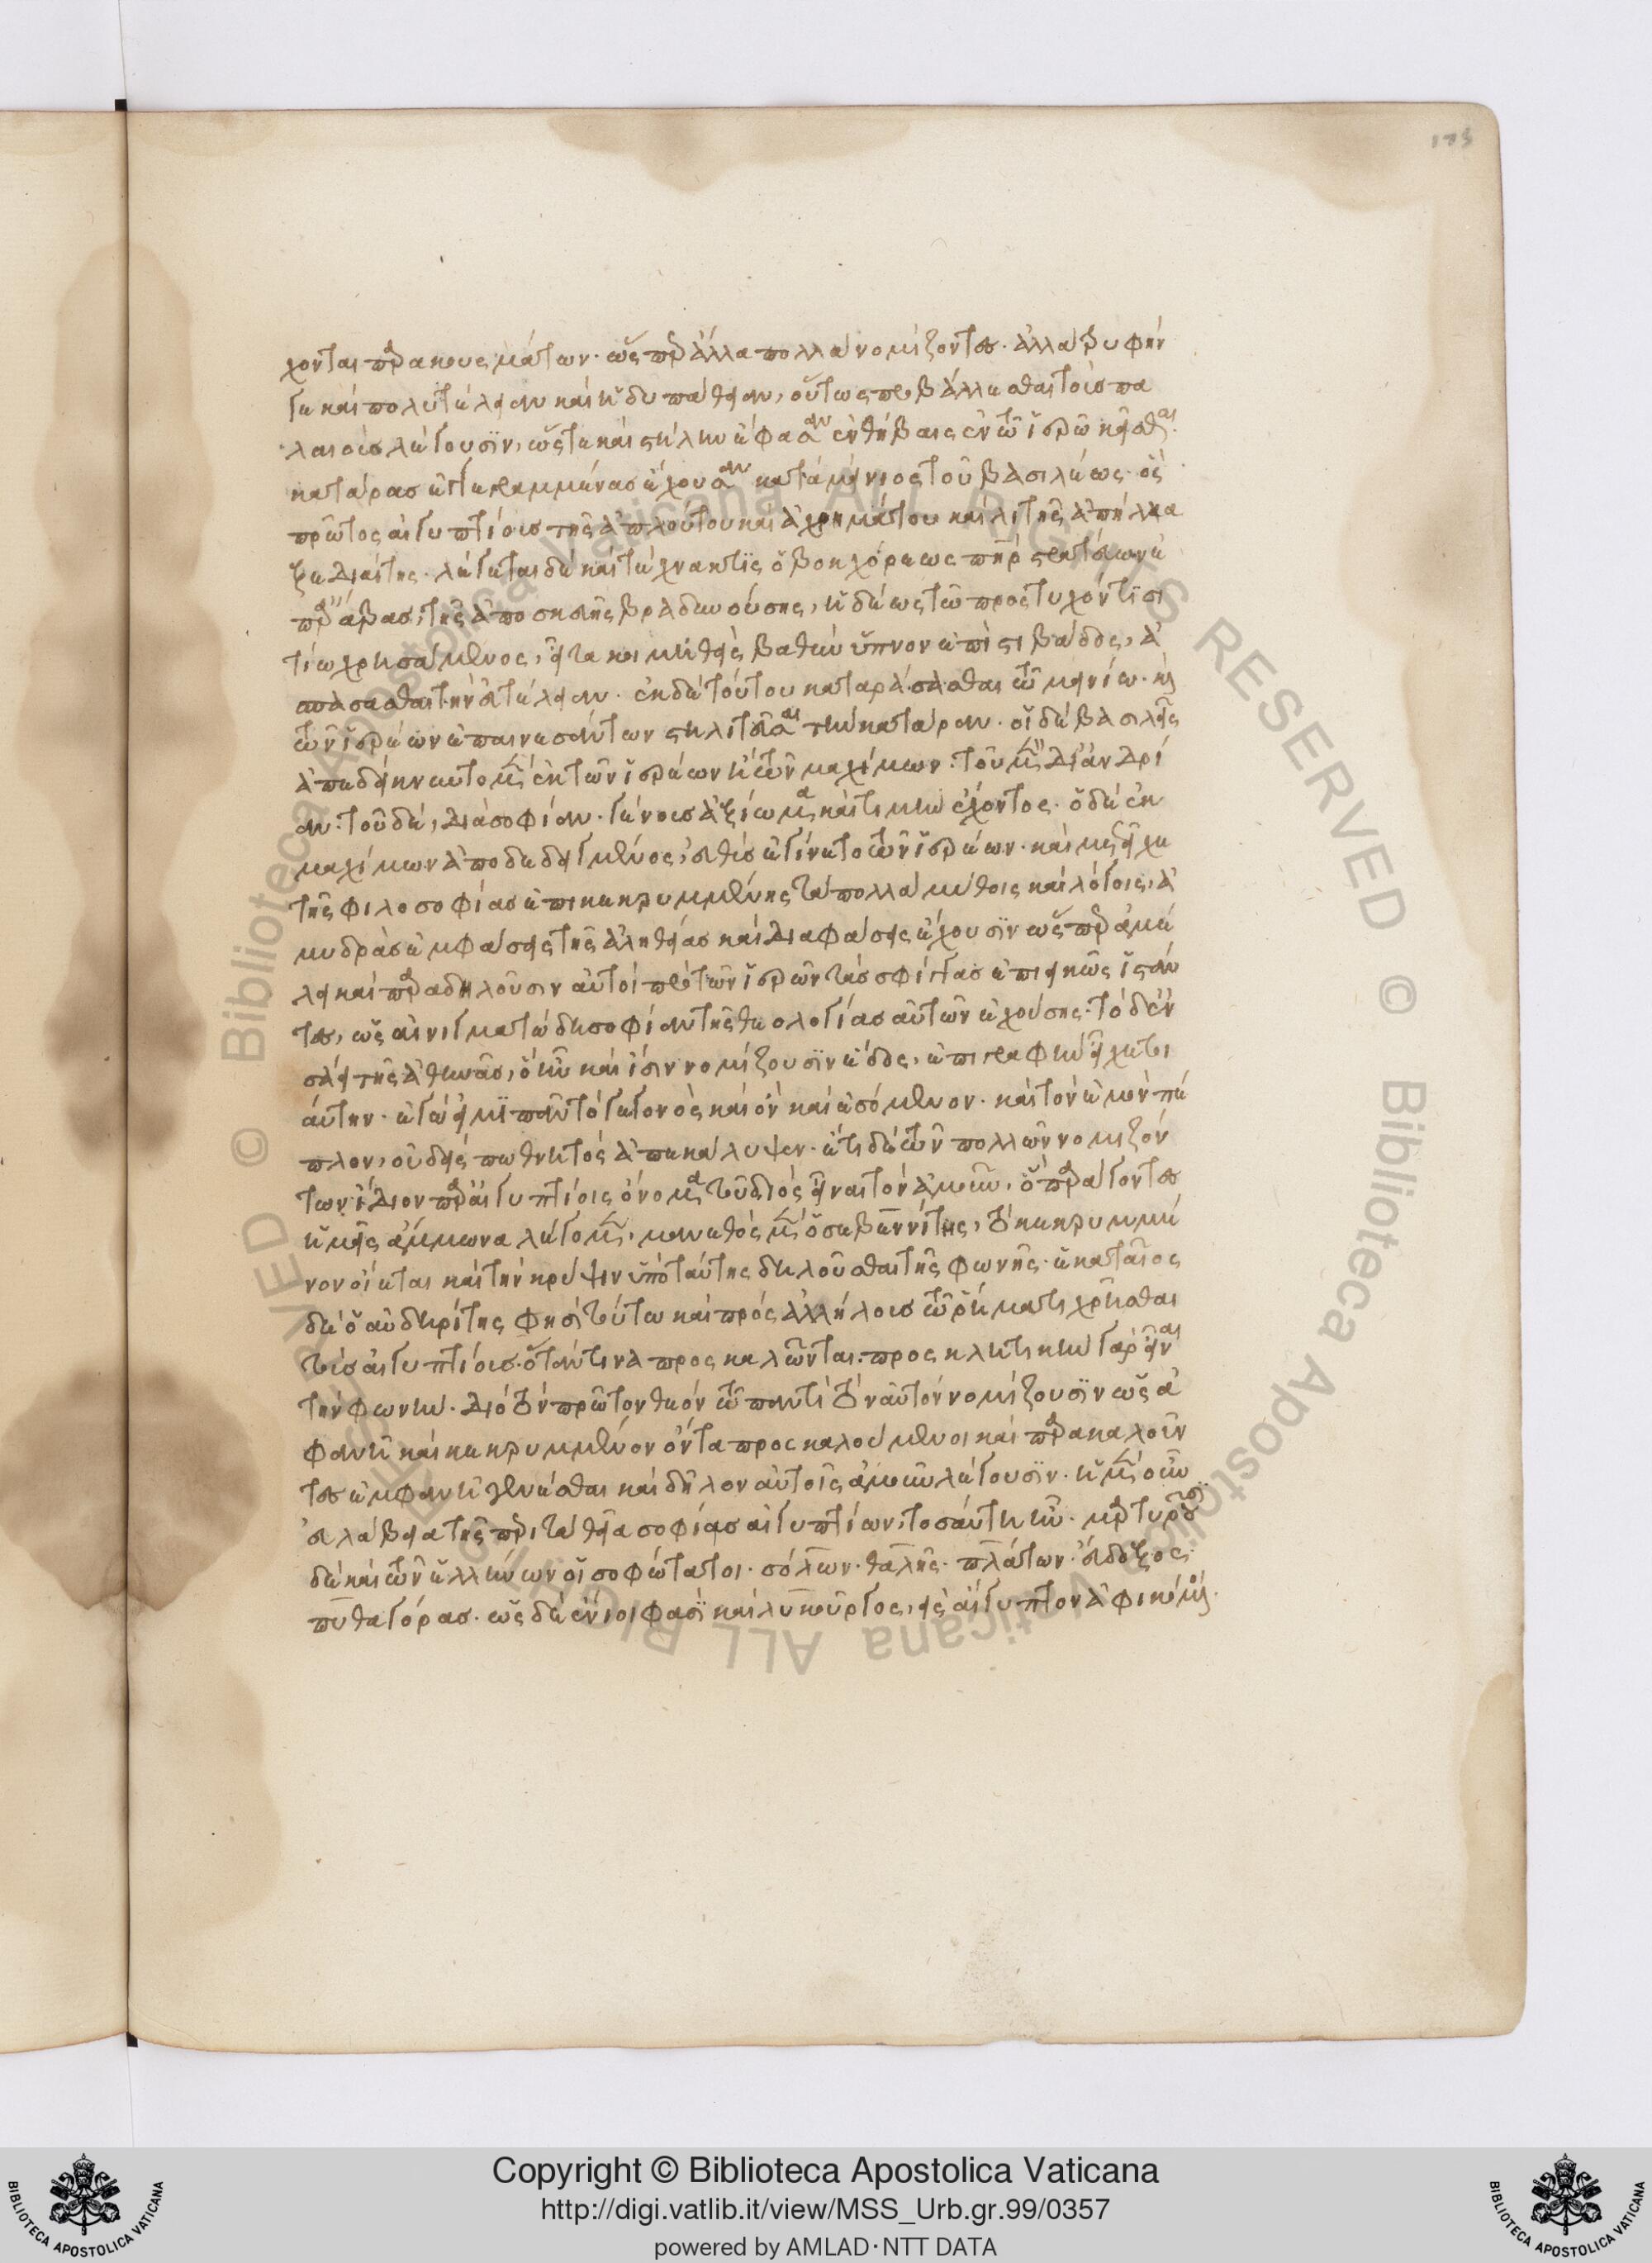 173
χονται παρὰ κουσμάτων· ὥσπερ ἄλλα πολλὰ νομίζοντες· ἀλλὰ τρυφήν
γε καὶ πολυτέλειαν καὶ ἡδυπάθειαν, οὕτως προβάλλεσθαι τοὺς πα
λαιοὺς λέγουσιν, ὥστε καὶ στήλην ἔφασαν ἐν θήβαις ἐν τῶ ἱερῶ κεῖσθαι
κατάρας ἐγγεγραμμένας ἔχουσαν κατὰ μείνιος τοῦ βασιλέως· ὃς
πρῶτος αἰγυπτίους τῆς ἀπλούτου καὶ ἀχρημάτου καὶ λιτῆς ἀπήλλα
ξε διαίτης· λέγεται δὲ καὶ τέχνακτις ὁ βοκχόρεως πατὴρ στρατεύων ἐ
π' ἄραβας, τῆς ἀποσκευῆς βραδυνούσης, ἡδέως τῶ προστυχόντι σι
τίω χρησάμενος, εἶτα κοιμηθεὶς βαθὺν ὕπνον ἐπὶ στιβάδος, ἀ
σπάσασθαι τὴν εὐτέλειαν· ἐκ δὲ τούτου καταράσασθαι τῶ μεινίω· καὶ
τῶν ἱερέων ἐπαινεσάντων στηλιτεῦσαι τὴν κατάραν· οἱ δὲ βασιλεῖς
ἀπεδείκνυντο μὲν ἐκ τῶν ἱερέων ἢ τῶν μαχίμων· τοῦ μὲν δι' ἀνδρί
αν· τοῦ δὲ, διὰ σοφίαν· γένους ἀξίωμα καὶ τιμὴν ἔχοντος· ὁ δὲ ἐκ
μαχίμων ἀποδεδειγμένος, εὐθὺς ἐγίνετο τῶν ἱερέων· καὶ μετεῖχε
τῆς φιλοσοφίας ἐπικεκρυμμένης τὰ πολλὰ μύθοις καὶ λόγοις, ἀ
μυδρὰς ἐμφάσεις τῆς ἀληθείας καὶ διαφάσεις ἔχουσιν ὥσπερ ἀμέ
λει καὶ παραδηλοῦσιν αὐτοὶ πρὸ τῶν ἱερῶν τὰς σφίγγας ἐπιεικῶς ἱστάν
τες, ὡς αἰνιγματώδη σοφίαν τῆς θεολογίας αὐτῶν ἐχούσης· τὸ δ' ἐν
σάει τῆς ἀθηνᾶς, ὃ ἣν καὶ ἶσιν νομίζουσιν ἕδος, ἐπιγραφὴν εἶχε τοι
αύτην· ἐγώ εἰμι πᾶν τὸ γεγονὸς καὶ ὂν καὶ ἐσόμενον· καὶ τὸν ἐμὸν πέ
πλον, οὐδείς πω θνητὸς ἀπεκάλυψεν· ἔτι δὲ τῶν πολλῶν νομιζόν
των ἴδιον παρ' αἰγυπτίοις ὄνομα τοῦ διὸς εἶναι τὸν ἀμοῦν, ὃ παράγοντες
ἡμεῖς ἄμμωνα λέγομεν, μανεθὸς μὲν ὁ σεβεννίτης, τὸ κεκρυμμέ
νον οἴεται καὶ τὴν κρύψιν ὑπὸ ταύτης δηλοῦσθαι τῆς φωνῆς· ἑκαταῖος
δὲ ὁ αὐδηρίτης φησὶ τούτω καὶ πρὸς ἀλλήλους τῶ ῥήματι χρῆσθαι
τοὺς αἰγυπτίους· ὅταν τινὰ προσκαλῶνται· προσκλητικὴν γὰρ εἶναι
τὴν φωνήν· διὸ τὸν πρῶτον θεόν τῶ παντὶ τὸν αὐτὸν νομίζουσιν ὡς ἀ
φανῆ καὶ κεκρυμμένον ὄντα προσκαλούμενοι καὶ παρακαλοῦν
τες ἐμφανῆ γενέσθαι καὶ δῆλον αὐτοῖς ἀμοῦν λέγουσιν· ἡ μὲν οὖν
εὐλάβεια τῆς περὶ τὰ θεῖα σοφίας αἰγυπτίων, τοσαύτη ἦν· μαρτυροῦσι
δὲ καὶ τῶν ἑλλήνων οἱ σοφώτατοι· σόλων· θαλῆς· πλάτων· εὔδοξος·
πυθαγόρας· ὡς δὲ ἔνιοι φασὶ καὶ λυκοῦργος, εἰς αἴγυπτον ἀφικόμενοι·
Copyright © Biblioteca Apostolica Vaticana
http://digi.vatlib.it/view/MSS_Urb.gr.99/0357
powered by AMLAD·NTT DATA